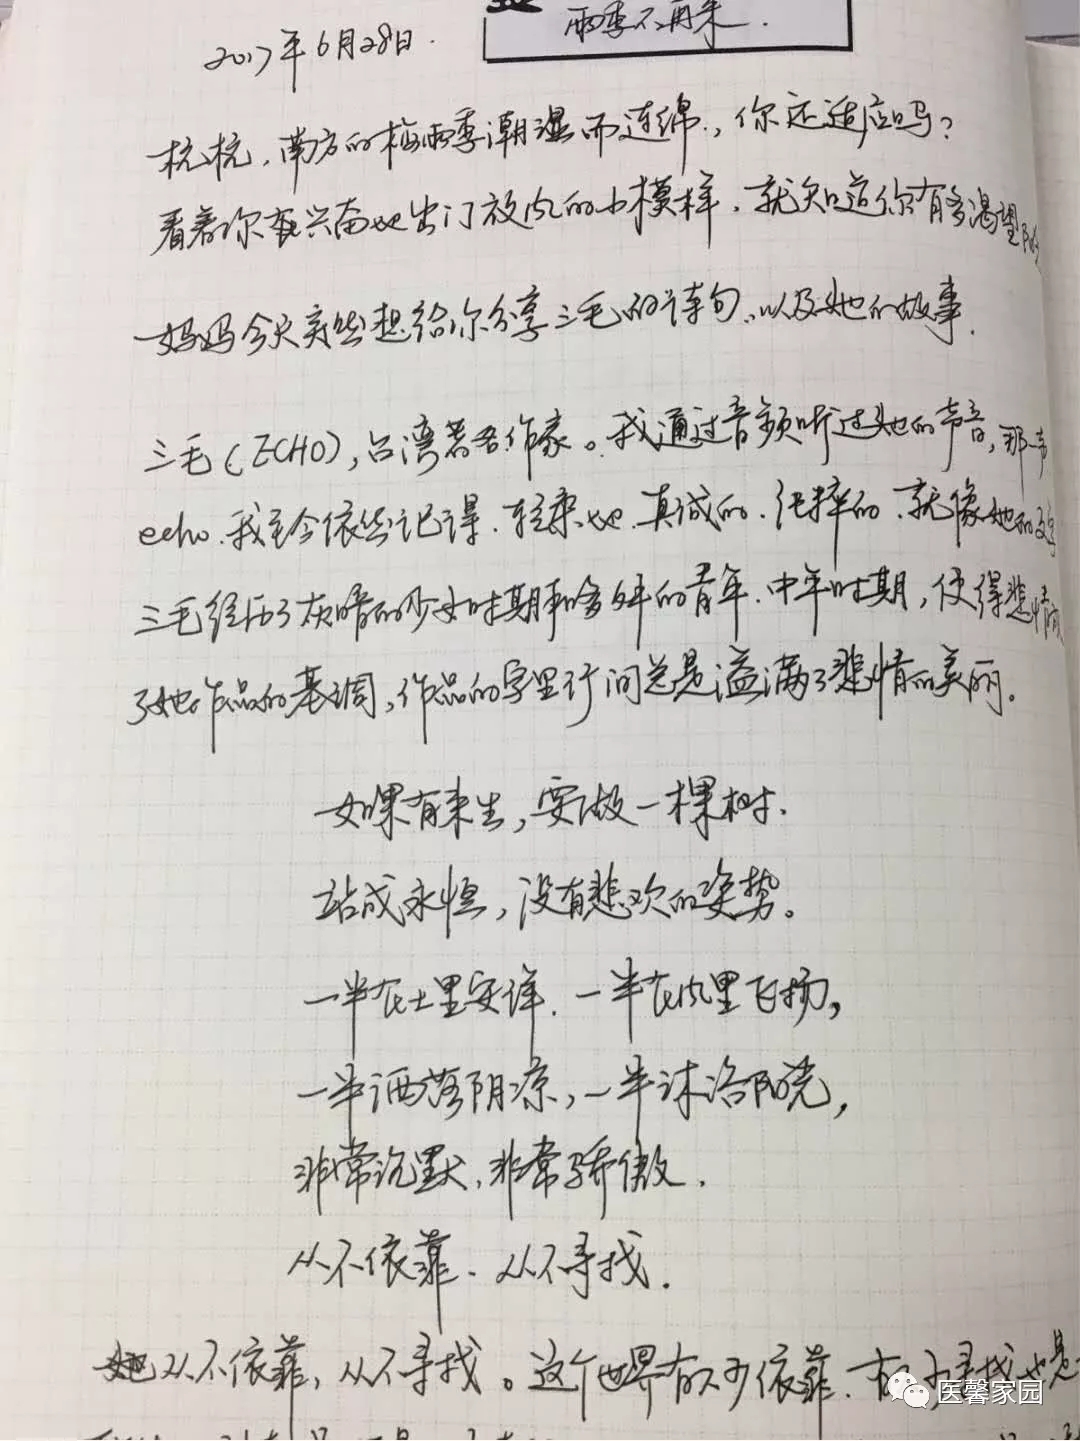 雨季不再来.
2017年6月28日.
杭杭,南方的梅雨季潮湿而连绵,你还适应吗?
看着你在兴奋地出门放风的小模样,就知道你有多渴望阳
妈妈今天突然想给你分享三毛的诗句,以及她的故事.
三毛(ECHO),台湾著名作家。我通过音频听过她的声音,那一声
echo.我至今依然记得.轻柔地.真诚的.纯粹的.就像她的文字
三毛经历了灰暗的少女时期和多年的青年.中年时期,使得悲情成
了她作品的基调,作品的字里行间总是溢满了悲情的美丽。
如果有来生,要做一棵树.
站成永恒,没有悲欢的姿势。
一半在土里安详.一半在风里飞扬,
一半洒落阴凉,一半沐浴阳光,
非常沉默,非常骄傲.
从不依靠.从不寻找.
她从不依靠,从不寻找。这个世界有不少依靠.有 寻找也是
医馨家园